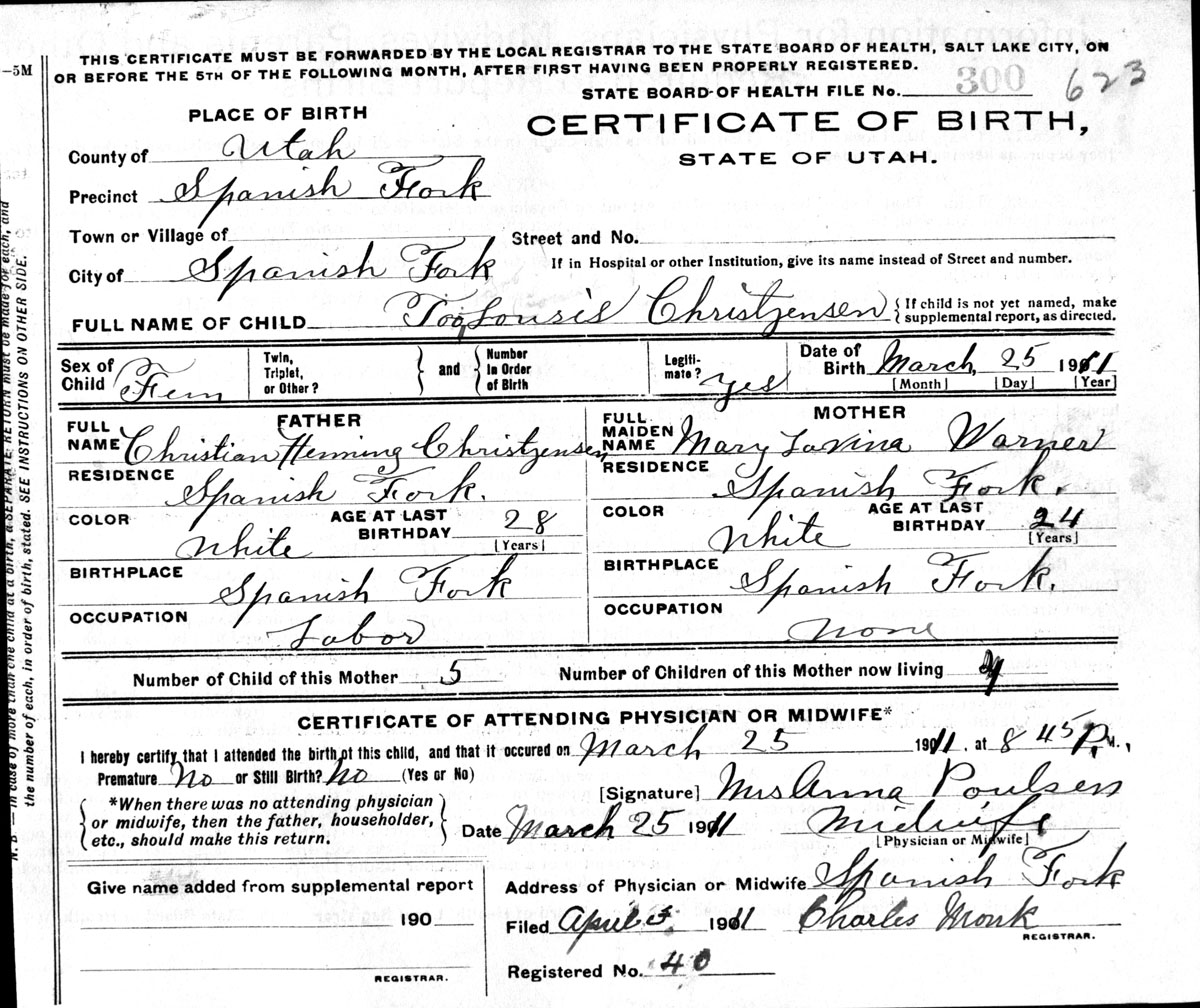 THIS CERTIFICATE MUST BE FORWARDED BY THE LOCAL REGISTRAR TO THE STATE BOARD OF HEALTH, SALT LAKE CITY, ON
—5M
OR BEFORE THE 5TH OF THE FOLLOWING MONTH, AFTER FIRST HAVING BEEN PROPERLY REGISTERED.
STATE BOARD OF HEALTH FILE No. 300 623
PLACE OF BIRTH
CERTIFICATE OF BIRTH,
STATE OF UTAH.
County of Utah
Precinct Spanish Fork
Town or Village of
Street and No.
City of Spanish Fork
If in Hospital or other Institution, give its name instead of Street and number.
FULL NAME OF CHILD Christzensen
If child is not yet named, make
supplemental report, as directed.
Sex of Child Fem
Twin, Triplet, or Other?
and
Number In Order of Birth
Legiti- mate? yes
Date of Birth March, 25 1911
[Month] [Day] [Year]
FATHER
MOTHER
FULL NAME Christian Heming Christzensen
FULL MAIDEN NAME Mary Lavina Warner
RESIDENCE Spanish Fork.
RESIDENCE Spanish Fork.
COLOR White
AGE AT LAST BIRTHDAY 28
[Years]
COLOR White
AGE AT LAST BIRTHDAY 24
[Years]
BIRTHPLACE Spanish Fork
BIRTHPLACE Spanish Fork.
OCCUPATION Labor
OCCUPATION None
Number of Child of this Mother 5
Number of Children of this Mother now living 4
CERTIFICATE OF ATTENDING PHYSICIAN OR MIDWIFE*
I hereby certify that I attended the birth of this child, and that it occured on March 25 1911, at 8 45 P.M.,
Premature No or Still Birth? No (Yes or No)
*When there was no attending physician
or midwife, then the father, householder,
etc., should make this return.
[Signature] Mrs Anna Poulsen
Date March 25 1911
Midwife
[Physician or Midwife]
Give name added from supplemental report
190
REGISTRAR.
Address of Physician or Midwife Spanish Fork
Filed April 1911 Charles Monk
REGISTRAR.
Registered No. 40
N. B.—In case of more than one child at a birth, a SEPARATE RETURN must be made for each, and
the number of each, in order of birth, stated. SEE INSTRUCTIONS ON OTHER SIDE.